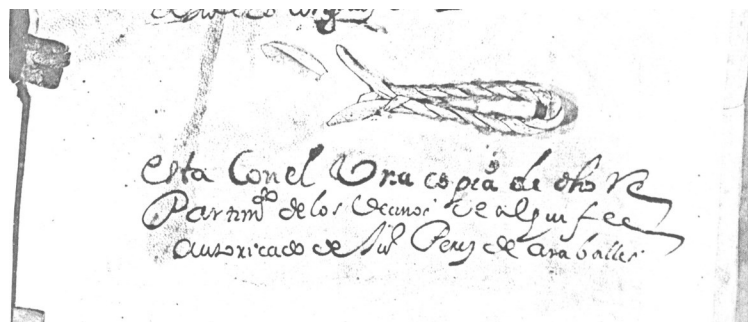 esta Con el Una copiª de dho Re
Partimto de los Vecinos de alquife
autoricado de Jul Perez de araballes